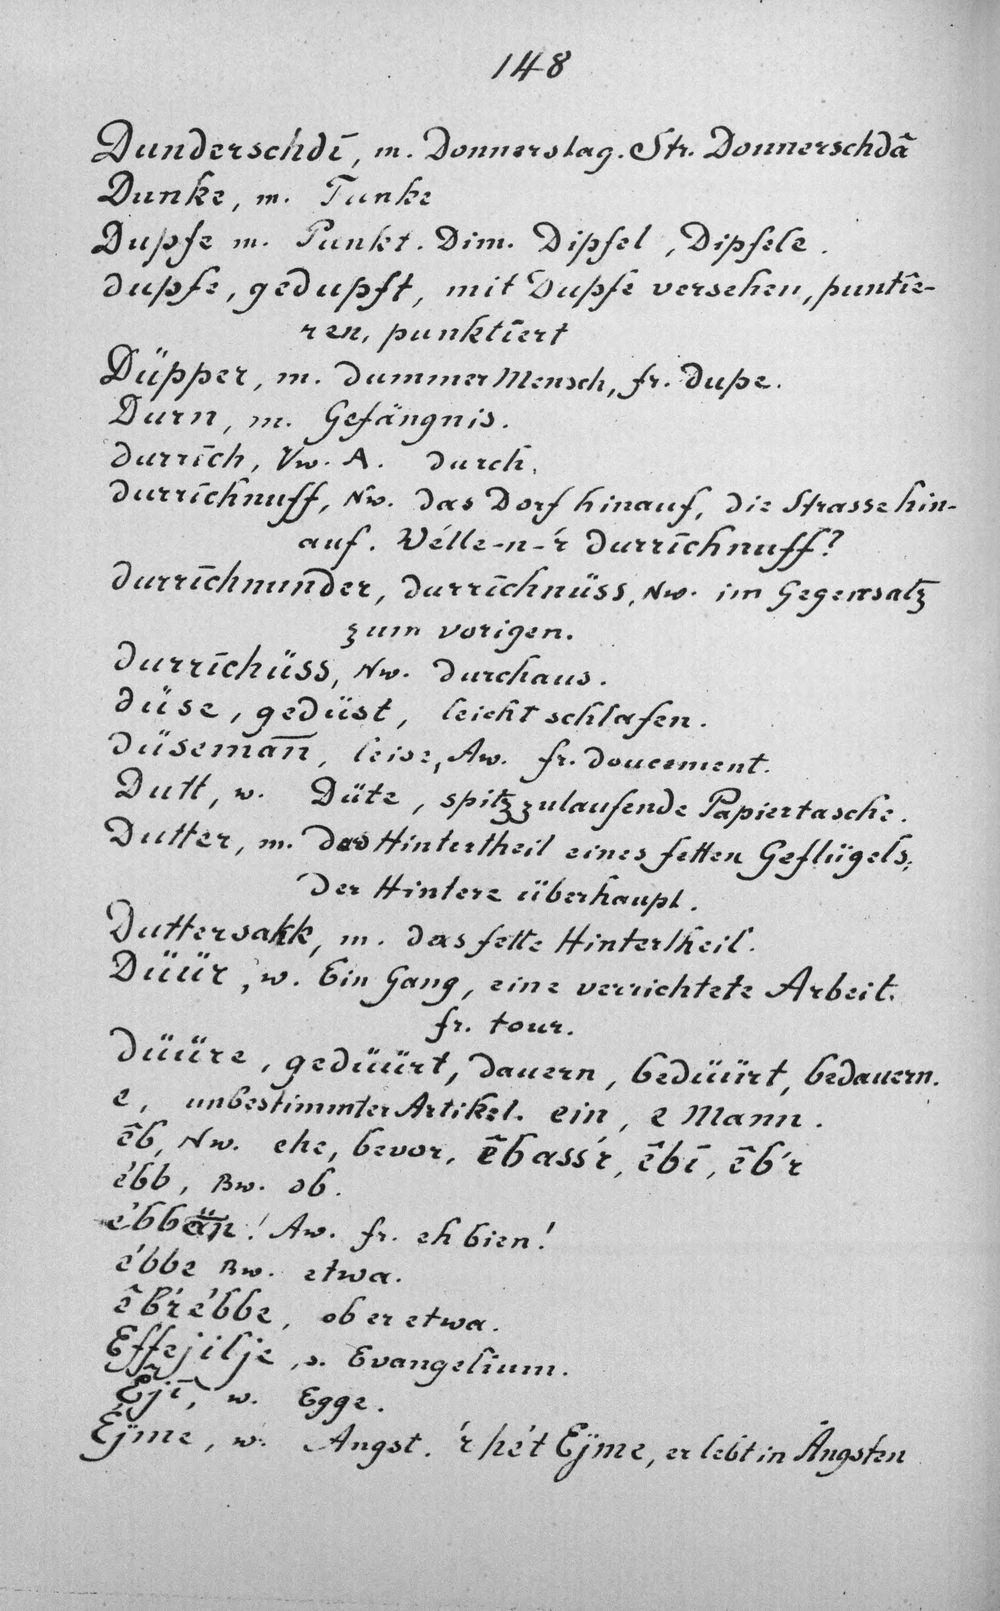 148
Dunderschdī, m. Donnerstag. Str. Donnerschdâ
Dunke, m. Tunke
Dupfe m. Punkt. Dim. Dipfel, Dipfele.
dupfe, gedupft, mit Dupfe versehen, puntie-
ren, punktiert
Düpper, m. dummer Mensch, fr. dupe.
Durn, m. Gefängnis.
durrīch, Vw. A. durch.
durrīchnuff, Nw. das Dorf hinauf, die Strasse hin-
auf. Wélle-n-'r durrīchnuff?
durrīchnunder, durrīchnüss, Nw. im Gegensatz
zum vorigen.
durrīchüss, Nw. durchaus.
düse, gedüst, leicht schlafen.
düseman̄, leise, Aw. fr. doucement.
Dutt, w. Düte, spitzzulaufende Papiertasche.
Dutter, m. das Hintertheil eines fetten Geflügels;
der Hintere überhaupt.
Duttersakk, m. das fette Hintertheil.
Düür, w. Ein Gang, eine verrichtete Arbeit.
fr. tour.
düüre, gedüürt, dauern, bedüürt, bedauern.
e, unbestimmter Artikel. ein, e Mann.
êb, Nw. ehe, bevor, êbass'r, êbī, êb'r
ébb, Bw. ob.
ébbän! Aw. fr. eh bien!
ébbe Bw. etwa.
êb'r ébbe, ob er etwa.
Effejilje, s. Evangelium.
Ejī, w. Egge.
Éjme, w. Angst. 'r hét Éjme, er lebt in Ängsten